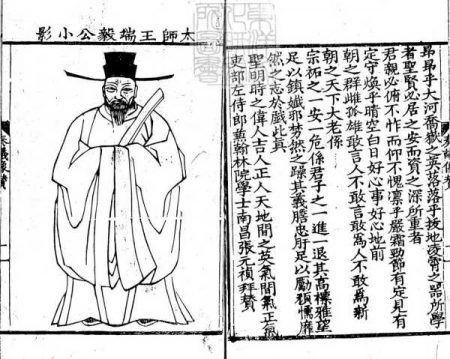 昻昻乎大河喬嶽之英落落乎拔地淩霄之器所學
者聖賢必居之安而資之深所重者
君親必俯不怍而仰不愧凛乎嚴霜勁節有定見有
定守煥乎晴空白日好心事好心地前
朝之群雌孤雄敢言人不敢言敢為人不敢為新
朝之天下大老係
宗祏之一安一危係君子之一進一退其高標雅望
足以鎮然之躁其義膽忠肝足以勵頹懦靡
然之志於戲此真
聖明時之偉人吉人正人天地間之英氣間氣正氣
吏部左侍郎兼翰林院學士南昌張元禎拜贊
太師王端毅公小影